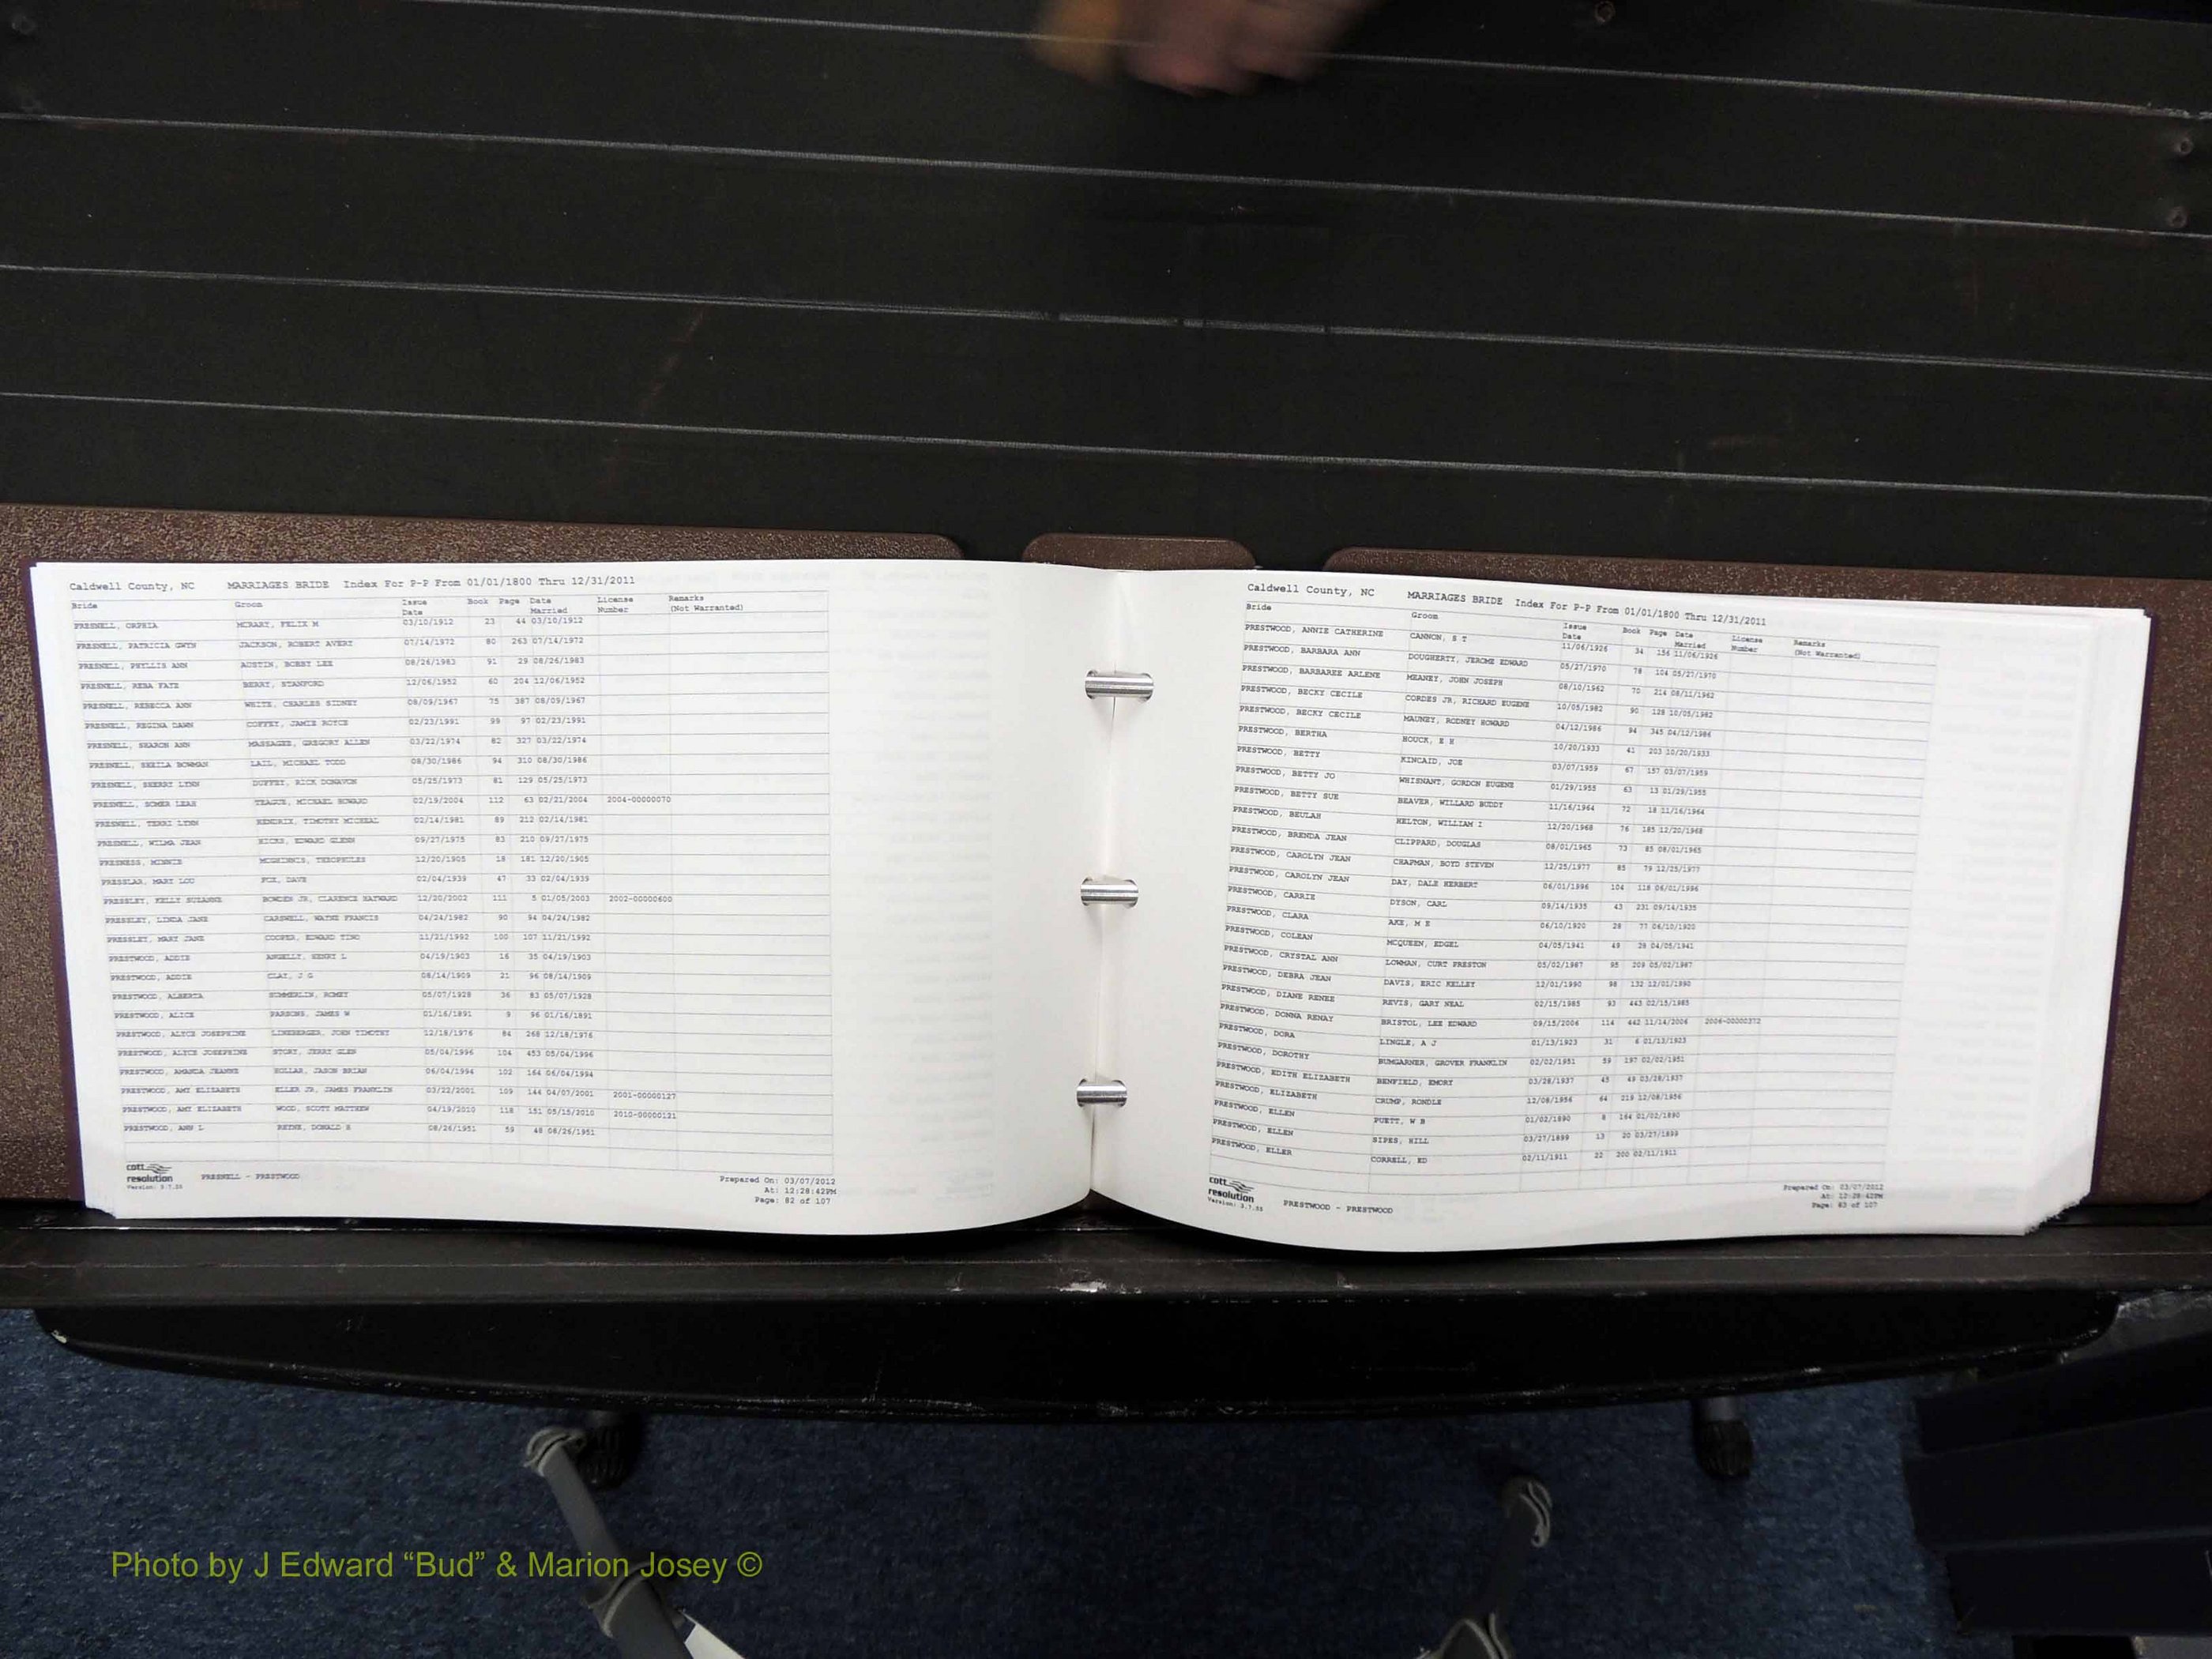 Caldwell County, NC MARRIAGES BRIDE Index For P-P From 01/01/1800 Thru 12/31/2011
Bride Groom Issue Date Book Page Date Married License Number Remarks (Not Warranted)
PRESNELL, ORPHIA MCRARY, FELIX M 03/10/1912 23 44 03/10/1912
PRESNELL, PATRICIA GWYN JACKSON, ROBERT AVERY 07/14/1972 80 263 07/14/1972
PRESNELL, PHYLLIS ANN AUSTIN, BOBBY LEE 08/26/1983 91 29 08/26/1983
PRESNELL, REBA FAYE BERRY, STANFORD 12/06/1952 60 204 12/06/1952
PRESNELL, REBECCA ANN WHITE, CHARLES SIDNEY 08/09/1967 75 387 08/09/1967
PRESNELL, REGINA DAWN COFFEY, JAMIE ROYCE 02/23/1991 99 97 02/23/1991
PRESNELL, SHARON ANN MASSAGEE, GREGORY ALLEN 03/22/1974 82 327 03/22/1974
PRESNELL, SHEILA BOWMAN LAIL, MICHAEL TODD 08/30/1986 94 310 08/30/1986
PRESNELL, SHERRI LYNN DUFFEY, RICK DONAVON 05/25/1973 81 129 05/25/1973
PRESNELL, SOMER LEAH TEAGUE, MICHAEL HOWARD 02/19/2004 112 63 02/21/2004 2004-00000070
PRESNELL, TERRI LYNN HENDRIX, TIMOTHY MICHEAL 02/14/1981 89 212 02/14/1981
PRESNELL, WILMA JEAN HICKS, EDWARD GLENN 09/27/1975 83 210 09/27/1975
PRESNESS, MINNIE MCGHINNIS, THEOPHILES 12/20/1905 18 181 12/20/1905
PRESSLAR, MARY LOU FOX, DAVE 02/04/1939 47 33 02/04/1939
PRESSLEY, KELLY SUZANNE BOWDEN JR, CLARENCE HAYWARD 12/20/2002 111 5 01/05/2003 2002-00000600
PRESSLEY, LINDA JANE CARSWELL, WAYNE FRANCIS 04/24/1982 90 94 04/24/1982
PRESSLEY, MARY JANE COOPER, EDWARD TINO 11/21/1992 100 107 11/21/1992
PRESTWOOD, ADDIE ANGELLY, HENRY L 04/19/1903 16 35 04/19/1903
PRESTWOOD, ADDIE CLAY, J G 08/14/1909 21 96 08/14/1909
PRESTWOOD, ALBERTA SUMMERLIN, ROMEY 05/07/1928 36 83 05/07/1928
PRESTWOOD, ALICE PARSONS, JAMES W 01/16/1891 9 96 01/16/1891
PRESTWOOD, ALYCE JOSEPHINE LINEBERGER, JOHN TIMOTHY 12/18/1976 84 268 12/18/1976
PRESTWOOD, ALYCE JOSEPHINE STORY, JERRY GLEN 05/04/1996 104 453 05/04/1996
PRESTWOOD, AMANDA JEANNE HOLLAR, JASON BRIAN 06/04/1994 102 164 06/04/1994
PRESTWOOD, AMY ELIZABETH ELLER JR, JAMES FRANKLIN 03/22/2001 109 144 04/07/2001 2001-00000127
PRESTWOOD, AMY ELIZABETH WOOD, SCOTT MATTHEW 04/19/2010 118 151 05/15/2010 2010-00000121
PRESTWOOD, ANN L DONALD 08/26/1951 59 48 08/26/1951
cott resolution
Version: 3.7.33
PRESNELL - PRESTWOOD
Prepared On: 03/07/2012
At: 12:28:42PM
Page: 82 of 107
Caldwell County, NC MARRIAGES BRIDE Index For P-P From 01/01/1800 Thru 12/31/2011
Bride Groom Issue Date Book Page Date Married License Number Remarks (Not Warranted)
PRESTWOOD, ANNIE CATHERINE CANNON, S T 11/06/1926 34 156 11/06/1926
PRESTWOOD, BARBARA ANN DOUGHERTY, JEROME EDWARD 05/27/1970 78 104 05/27/1970
PRESTWOOD, BARBAREE ARLENE MEANEY, JOHN JOSEPH 08/10/1962 70 214 08/11/1962
PRESTWOOD, BECKY CECILE CORDES JR, RICHARD EUGENE 10/05/1982 90 128 10/05/1982
PRESTWOOD, BECKY CECILE MAUNEY, RODNEY HOWARD 04/12/1986 94 345 04/12/1986
PRESTWOOD, BERTHA HOUCK, E H 10/20/1933 41 203 10/20/1933
PRESTWOOD, BETTY KINCAID, JOE 03/07/1959 67 157 03/07/1959
PRESTWOOD, BETTY JO WHISNANT, GORDON EUGENE 01/29/1955 63 13 01/29/1955
PRESTWOOD, BETTY SUE BEAVER, WILLARD BUDDY 11/16/1964 72 18 11/16/1964
PRESTWOOD, BEULAH HELTON, WILLIAM I 12/20/1968 76 185 12/20/1968
PRESTWOOD, BRENDA JEAN CLIPPARD, DOUGLAS 08/01/1965 73 85 08/01/1965
PRESTWOOD, CAROLYN JEAN CHAPMAN, BOYD STEVEN 12/25/1977 85 79 12/25/1977
PRESTWOOD, CAROLYN JEAN DAY, DALE HERBERT 06/01/1996 104 118 06/01/1996
PRESTWOOD, CARRIE DYSON, CARL 09/14/1935 43 231 09/14/1935
PRESTWOOD, CLARA AKE, M E 06/10/1920 28 77 06/10/1920
PRESTWOOD, COLEAN MCQUEEN, EDGEL 04/05/1941 49 28 04/05/1941
PRESTWOOD, CRYSTAL ANN LOWMAN, CURT PRESTON 05/02/1987 95 209 05/02/1987
PRESTWOOD, DEBRA JEAN DAVIS, ERIC KELLEY 12/01/1990 98 132 12/01/1990
PRESTWOOD, DIANE RENEE REVIS, GARY NEAL 02/15/1985 93 443 02/15/1985
PRESTWOOD, DONNA RENAY BRISTOL, LEE EDWARD 09/15/2006 114 442 11/14/2006 2006-00000372
PRESTWOOD, DORA LINGLE, A J 01/13/1923 31 6 01/13/1923
PRESTWOOD, DOROTHY BUMGARNER, GROVER FRANKLIN 02/02/1951 59 197 02/02/1951
PRESTWOOD, EDITH ELIZABETH BENFIELD, EMORY 03/28/1937 45 49 03/28/1937
PRESTWOOD, ELIZABETH CRUMP, RONDLE 12/08/1956 64 219 12/08/1956
PRESTWOOD, ELLEN PUETT, W B 01/02/1890 8 184 01/02/1890
PRESTWOOD, ELLEN SIPES, HILL 03/27/1899 13 20 03/27/1899
PRESTWOOD, ELLER CORRELL, ED 02/11/1911 22 200 02/11/1911
cott resolution
Version: 3.7.33
PRESTWOOD - PRESTWOOD
Prepared On: 03/07/2012
At: 12:28:42PM
Page: 83 of 107
Photo by J Edward “Bud” & Marion Josey ©